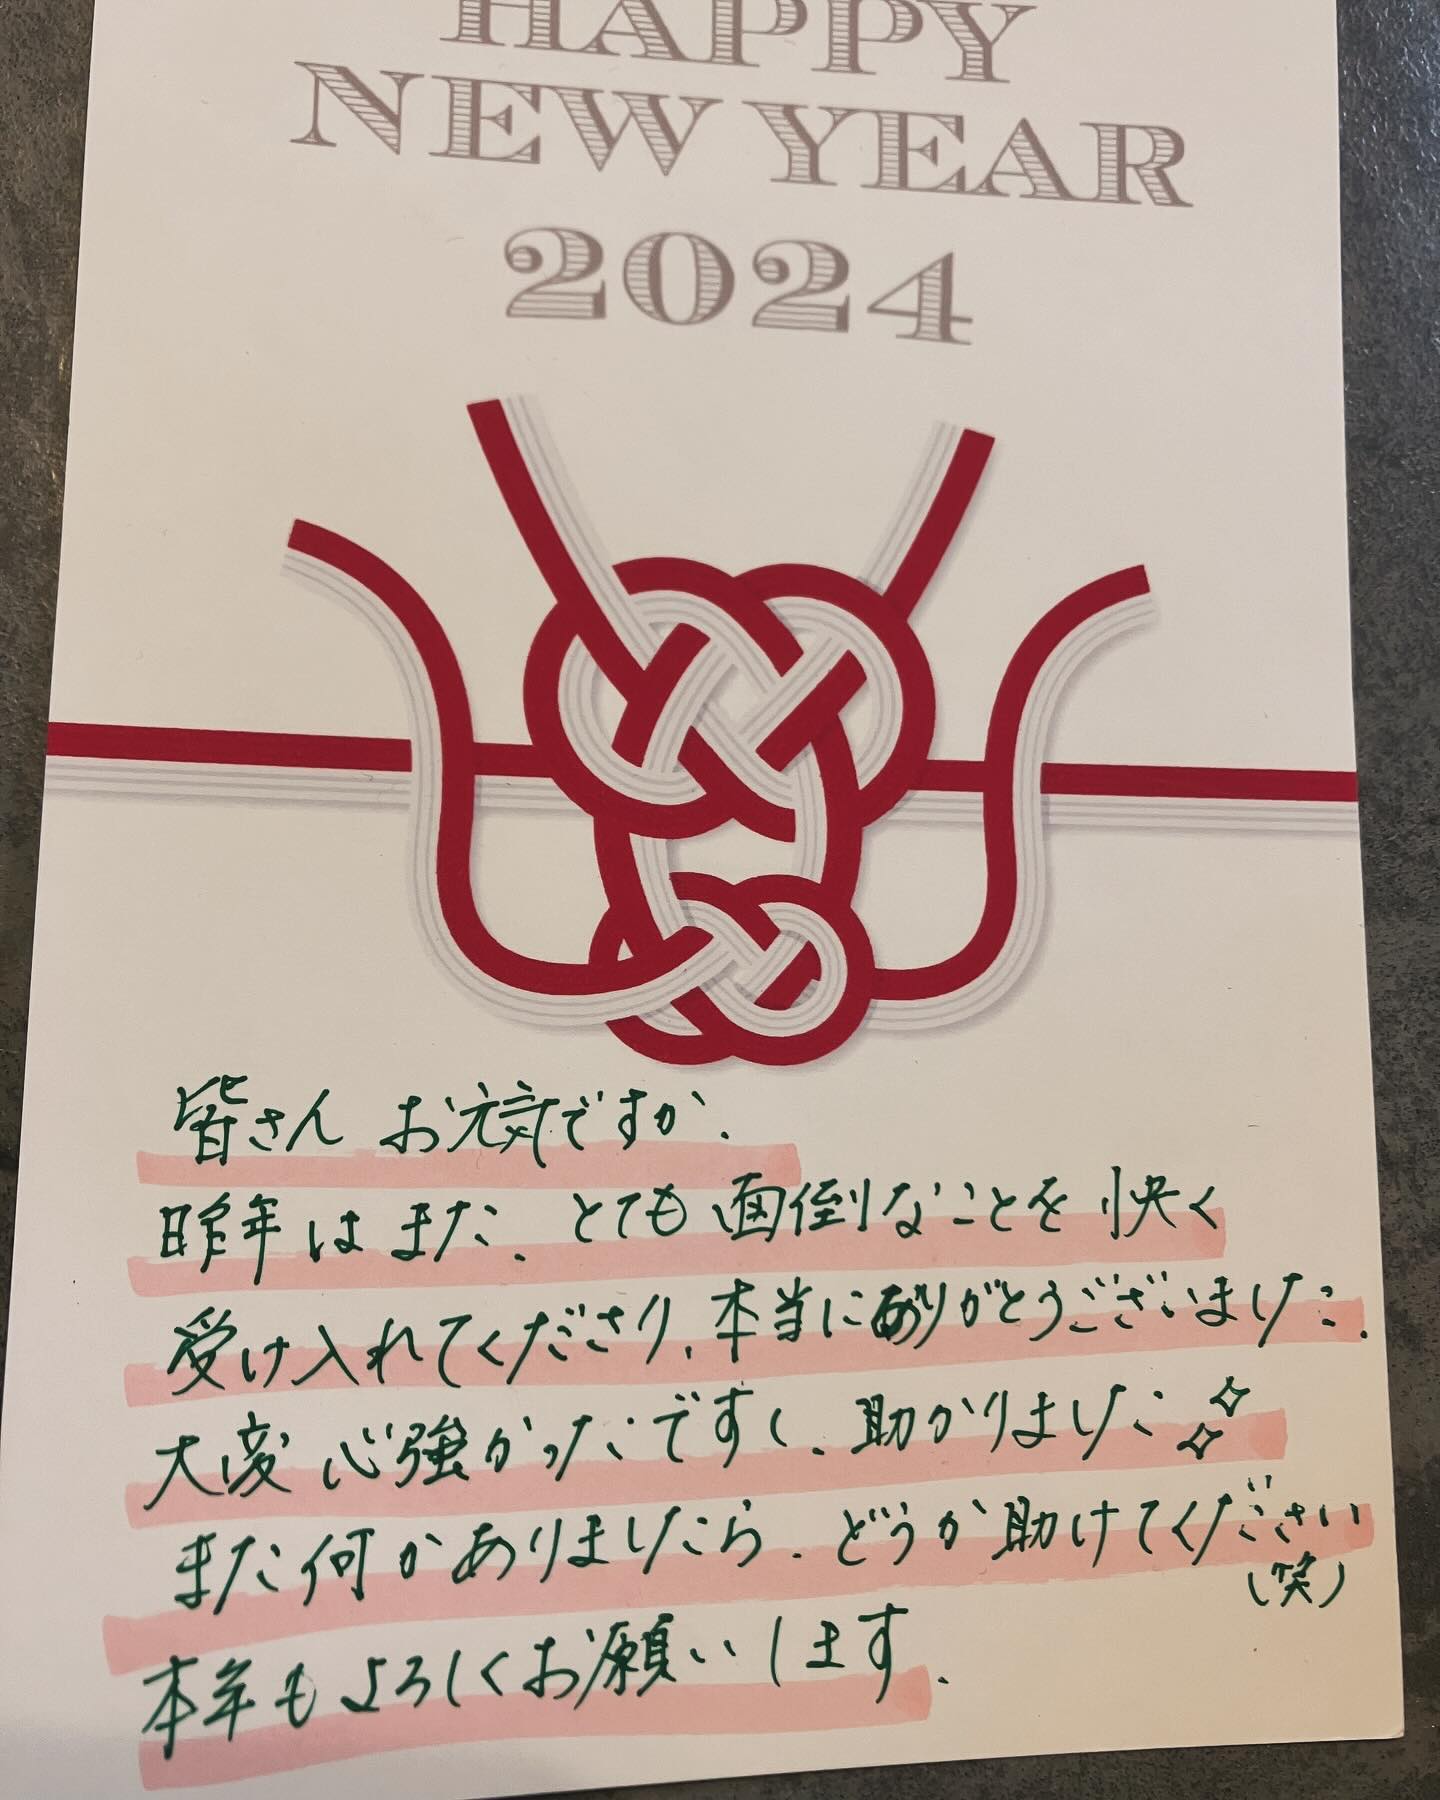 HAPPY
NEW YEAR
2024
皆さん お元気ですか.
昨年はまた、とても面倒なことを快く
受け入れてくださり、本当にありがとうございました.
大変心強かったですし、助かりました✧✧
また何かありましたら、どうか助けてください
(笑)
本年もよろしくお願いします.